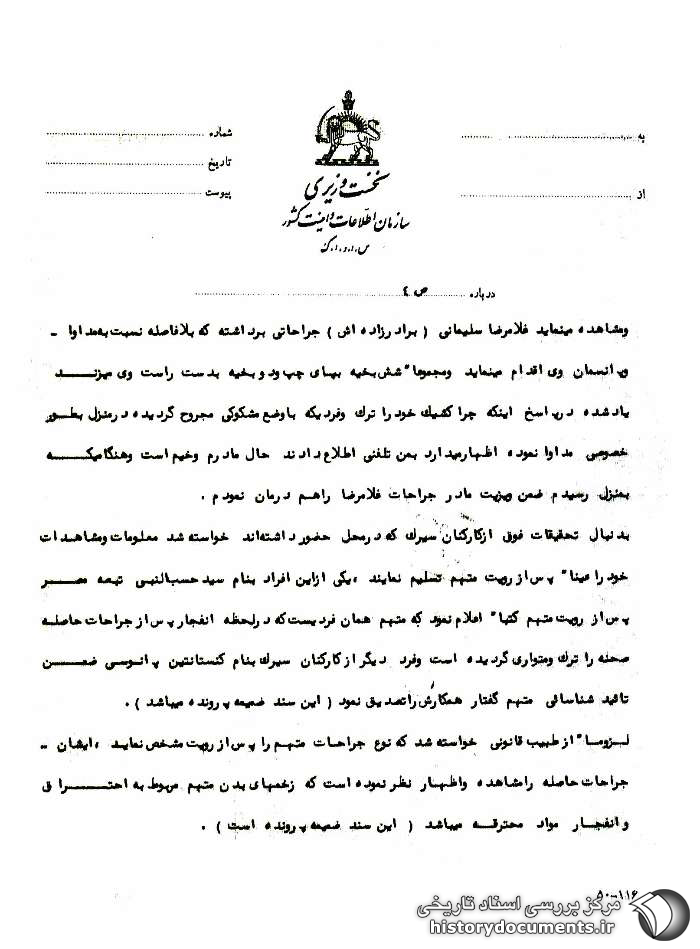 به
شماره
تاریخ
از
پیوست
نخست وزیری
سازمان اطلاعات و امنیت کشور
س.ا.و.ا.ک
درباره ص ٤
ومشاهده مینماید غلامرضا سلیمانی ( برادرزاده اش ) جراحاتی برداشته که بلافاصله نسبت به مداوا -
وپانسمان وی اقدام مینماید ومجموعا" شش بخیه بپای چپ ودوبخیه بدست راست وی میزند
یادشده درپاسخ اینکه چرا کشیک خود را ترک وفردیکه باوضع مشکوکی مجروح گردیده درمنزل بطور
خصوصی مداوا نموده اظهارمیدارد بمن تلفنی اطلاع دادند حال مادرم وخیم است وهنگامیکه
بمنزل رسیدم ضمن ویزیت مادر جراحات غلامرضا راهم درمان نمودم .
بدنبال تحقیقات فوق ازکارکنان سیرک که درمحل حضورداشته‌اند خواسته شد معلومات ومشاهدات
خود را عینا" پس از رویت متهم تسلیم نمایند ،یکی ازاین افراد بنام سید حسب النبی تبعه مصر
پس از رویت متهم کتبا" اعلام نمود که متهم همان فردیست که درلحظه انفجار پس از جراحات حاصله
صحنه را ترک ومتواری گردیده است وفرد دیگر ازکارکنان سیرک بنام کنستانتین پانوسی ضمن
تائید شناسائی متهم گفتار همکارش راتصدیق نمود ( این سند ضمیمه پرونده میباشد ) .
لزوما" از طبیب قانونی خواسته شد که نوع جراحات متهم را پس از رویت مشخص نماید ،ایشان -
جراحات حاصله رامشاهده واظهار نظر نموده است که زخمهای بدن متهم مربوط به احتراق
و انفجار مواد محترقه میباشد ( این سند ضمیمه پرونده است ) .
۵۰-۱۱۶
مرکز بررسی اسناد تاریخی
historydocuments.ir